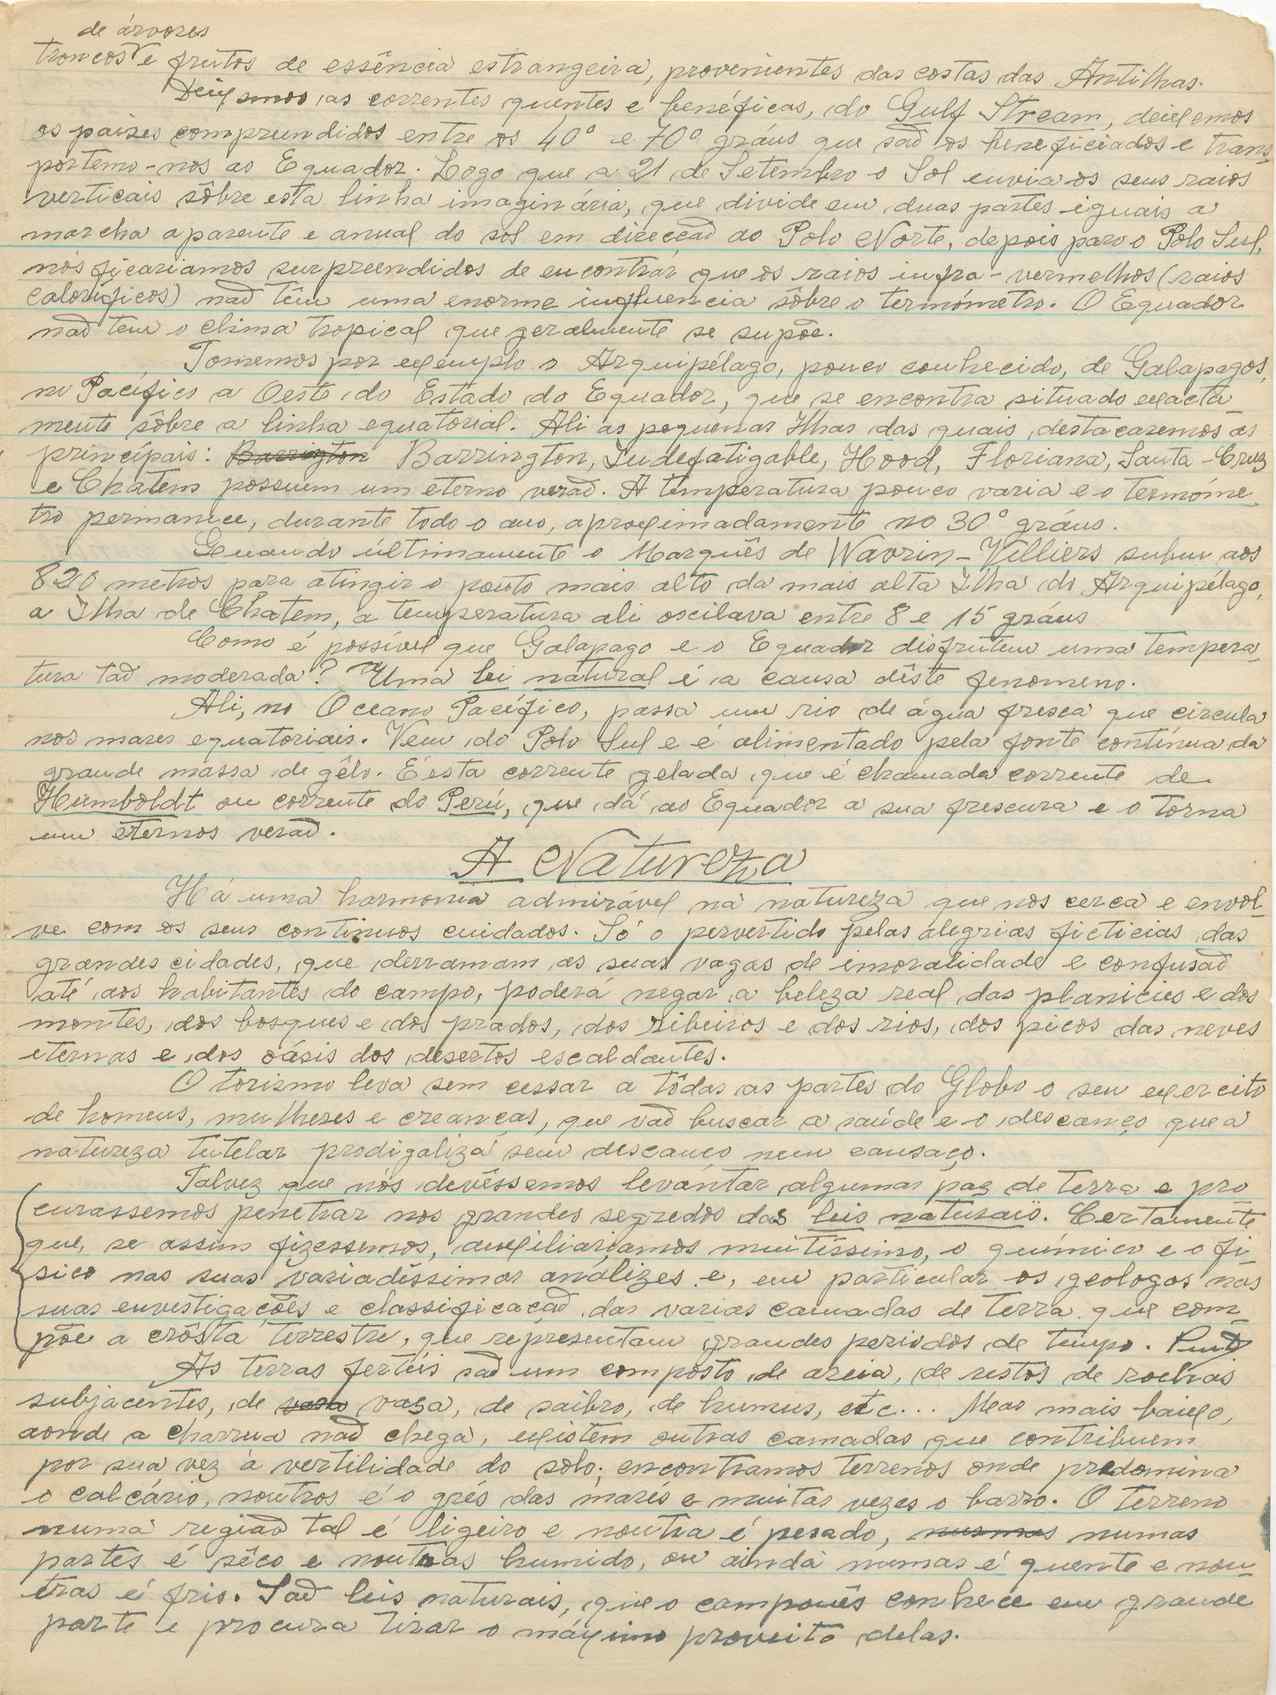 de árvores
troncos e frutos de essência estrangeira, provenientes das costas das Antilhas.
Deixemos as correntes quentes e benéficas, do Gulf Stream, deixemos
os países compreendidos entre os 40° e 70° gráus que saõ os beneficiados e trans-
portemo-nos ao Equador. Logo que a 21 de Setembro o Sol envia os seus raios
verticais sôbre esta linha imaginária, que divide em duas partes iguais a
marcha aparente e anual do sol em direcçaõ ao Polo Norte, depois para o Polo Sul,
nós ficariamos surpreendidos de encontrar que os raios infra-vermelhos (raios
caloríficos) naõ têm uma enorme influencia sôbre o termómetro. O Equador
naõ tem o clima tropical que geralmente se supõe.
Tomemos por exemplo o Arquipélago, pouco conhecido, de Galapagos,
no Pacífico a Oeste do Estado do Equador, que se encontra situado exacta-
mente sôbre a linha equatorial. Ali as pequenas Ilhas das quais destacaremos as
principais: Barrington Barrington, Indefatigable, Hood, Floriana, Santa-Cruz
e Chátem possuem um eterno veraõ. A temperatura pouco varia e o termóme-
tro permanece, durante todo o ano, aproximadamente no 30° gráus.
Quando últimamente o Marquês de Wavrin-Villiers subiu aos
820 metros para atingir o ponto mais alto da mais alta Ilha do Arquipélago,
a Ilha de Chatem, a temperatura ali oscilava entre 8 e 15 gráus
Como é possível que Galapago e o Equador disfrutem uma tempera-
tura taõ moderada? Uma lei natural é a causa dêste fenomeno.
Ali, no Oceano Pacífico, passa um rio de água fresca que circula
nos mares equatoriais. Vem do Polo Sul e é alimentado pela fonte contínua da
grande massa de gêlo. E' esta corrente gelada que é chamada corrente de
Humboldt ou corrente do Perú, que dá ao Equador a sua frescura e o torna
um eternos veraõ.
A Natureza
Há uma harmonia admirável na natureza que nos cerca e envol-
ve com os seus continuos cuidados. Só o pervertido pelas alegrias ficticias das
grandes cidades, que derramam as suas vagas de imoralidade e confusaõ
até aos habitantes do campo, poderá negar a beleza real das planicies e dos
montes, dos bosques e dos prados, dos ribeiros e dos rios, dos picos das neves
eternas e dos oásis dos desertos escaldantes.
O torismo leva sem cessar a tôdas as partes do Globo o seu exercito
de homens, mulheres e creanças, que vaõ buscar a saúde e o descanço que a
natureza tutelar prodigaliza sem descanço nem cansaço.
Talvez que nós devêssemos levantar algumas paz de terra e pro
curassemos penetrar nos grandes segredos das leis naturais. Certamente
que, se assim fizessemos, auxiliariamos muitíssimo, o químico e o fi-
sico nas suas variadíssimas análizes e, em particular os geologos nas
suas envestigações e classificaçaõ das varias camadas de terra que com-
põe a crôsta terrestre, que representam grandes periodos de tempo.
As terras ferteis saõ um composto de areia, de restos de rochas
subjacentes, de vasa vasa, de saibro, de humus, etc... Mas mais baixo,
aonde a charrua naõ chega, existem outras camadas que contribuem
por sua vez á vertilidade do solo; encontramos terrenos onde predomina
o calcário, noutros é o grés das marés e muitas vezes o barro. O terreno
numa regiaõ tal é ligeiro e noutra é pesado, numas
partes é sêco e noutras humido, ou ainda numas é quente e nou-
tras é frio. Saõ leis naturais, que o camponês conhece em grande
parte e procura tirar o máximo proveito delas.